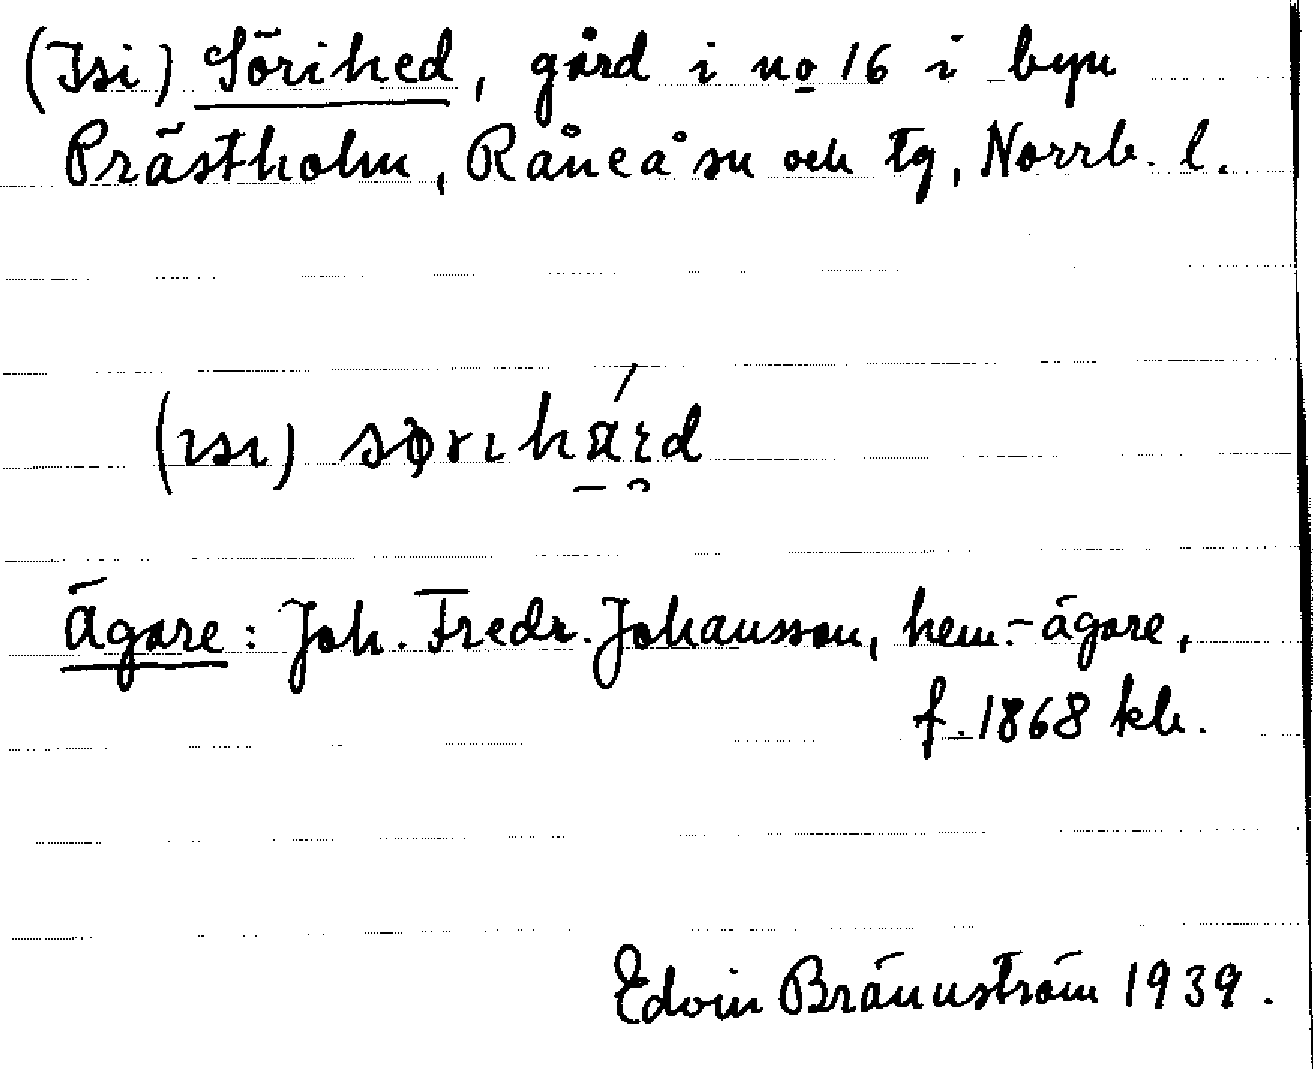 (Isi) Sörihed, gård i no 16 i byn
Prästholm, Råneå sn och tg, Norrb. l.
(ısı) sørıhá̱ɪ̯d
Ägare: Joh. Fredr. Johansson, hem.-ägare,
f. 1868 kb.
Edvin Brännström 1939.